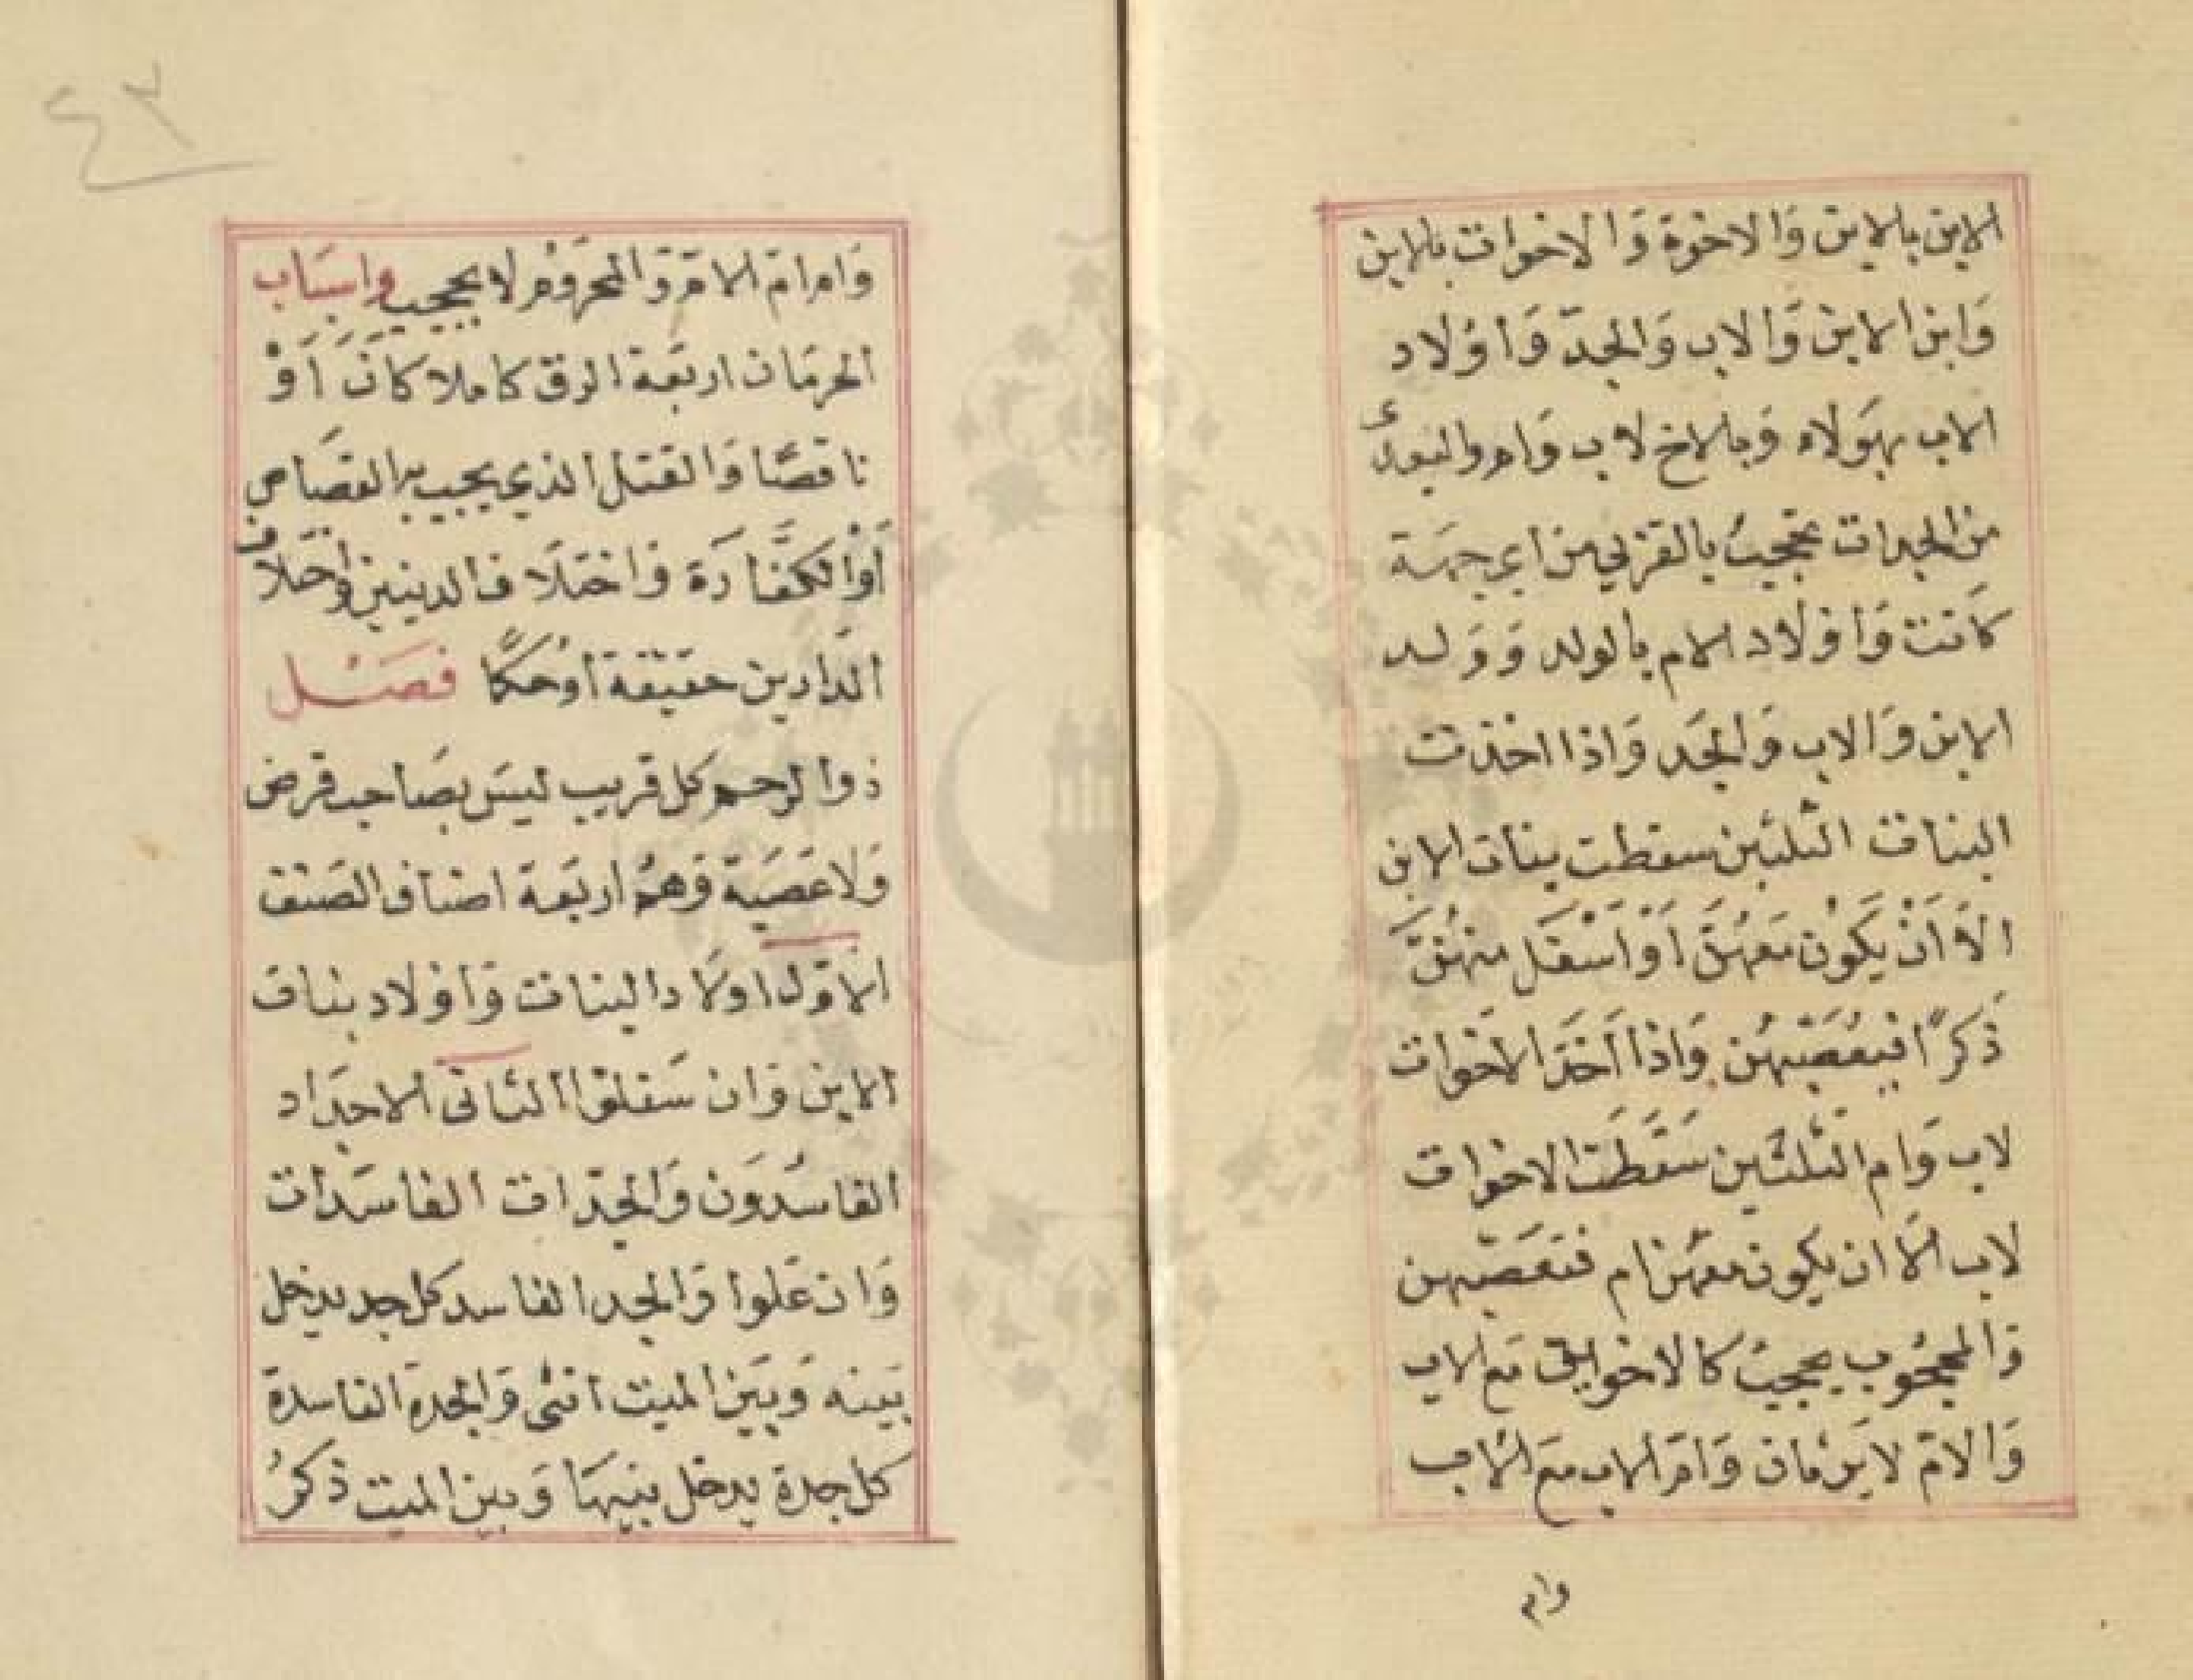 الابن بالابن وَالاخوَة وَالاخوات بالابن
وَابن الابن وَالاب وَالجدّ وَاوْلاد
الاب بهَولاء وَبالاخ لاب وَام والبعدى
من الجدات تحجبُ بالقربي من اي جهَة
كانت وَاوْلاد الام بالولد وَوَلد
الابن وَالاب وَالجَد وَاذا اخذت
البنات الثلثين سقطت بنات الابن
الاَّ اَنْ يَكُوْن مَعَهُنَّ اَوْ اَسْفَل مِنْهُنَّ
ذَكرًا فيُعَصّبهُن وَاذا اَخَذَ الاخوات
لاب وَام الثلثَين سَقَطَت الاخوات
لاب الاّ ان يكون معَهُن ام فيعَصّبهن
وَالمحجُوب يحجبُ كالاخواين مَع الاب
وَالامّ لا يَرثان وَامّ الاب مَع الاب
وام
٤٣
وَام ام الامّ وَالمحرُوْم لا يحجب واسبَاب
الحرمَان اربَعة الرق كاملا كانَ اَوْ
ناقصًا وَالقتل الذي يجب به القصَاص
اَوْ الكفَّارَة وَاختلَاف الدينين وَاختلاف
الدّارين حقيقة اوْ حُكمًا فصَـل
ذوا الرحم كل قريب ليسَ بصَاحب فرض
وَلا عَصَبَة وَهُم اربَعة اصناف الصَنف
الاوّل اولاد البنات وَاوْلاد بنات
الابن وَان سَفلوْا الثانى الاجدَاد
الفاسدُوَن وَالجدّات الفاسدَات
وَان عَلوا وَالجد الفاسد كل جد يدخل
بَينه وَبَين الميت انثى وَالجدة الفاسدة
كل جدة يدخل بينهَا وَبين الميت ذكرُ